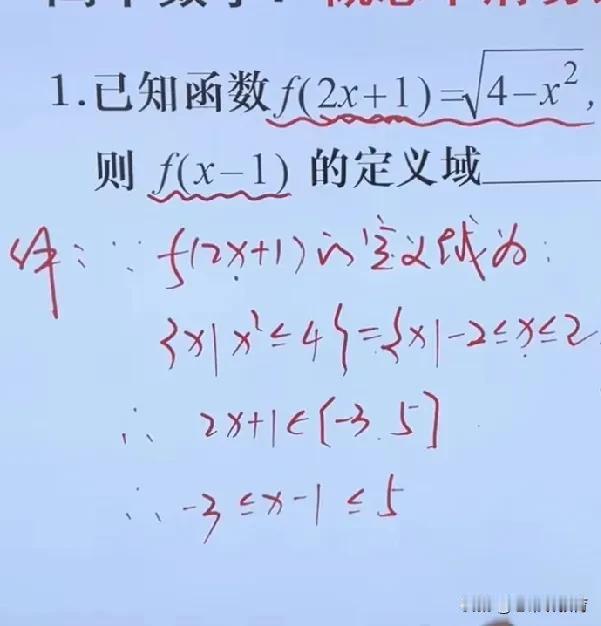 1.已知函数f(2x+1)=√4-x²,
则 f(x-1) 的定义域______
解: ∵ f(2x+1)的定义域为:
{x|x²≤4}={x|-2≤x≤2
∴ 2x+1∈[-3.5]
∴ -3≤x-1≤5